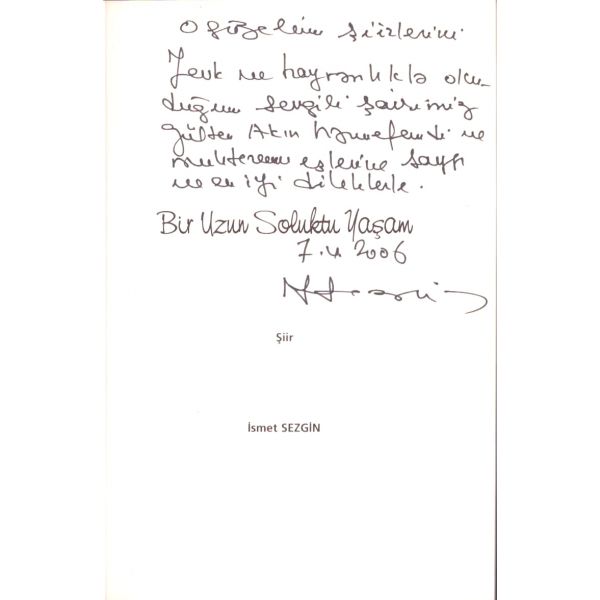 O güzelim şiirlerini
Zevk ve hayranlıkla oku-
duğum sevgili şairimiz
Gülten Akın hanımefendi ve
muhterem eşlerine saygı
ve en iyi dileklerle.
Bir Uzun Soluktu Yaşam
7.4.2006
Şiir
İsmet SEZGİN